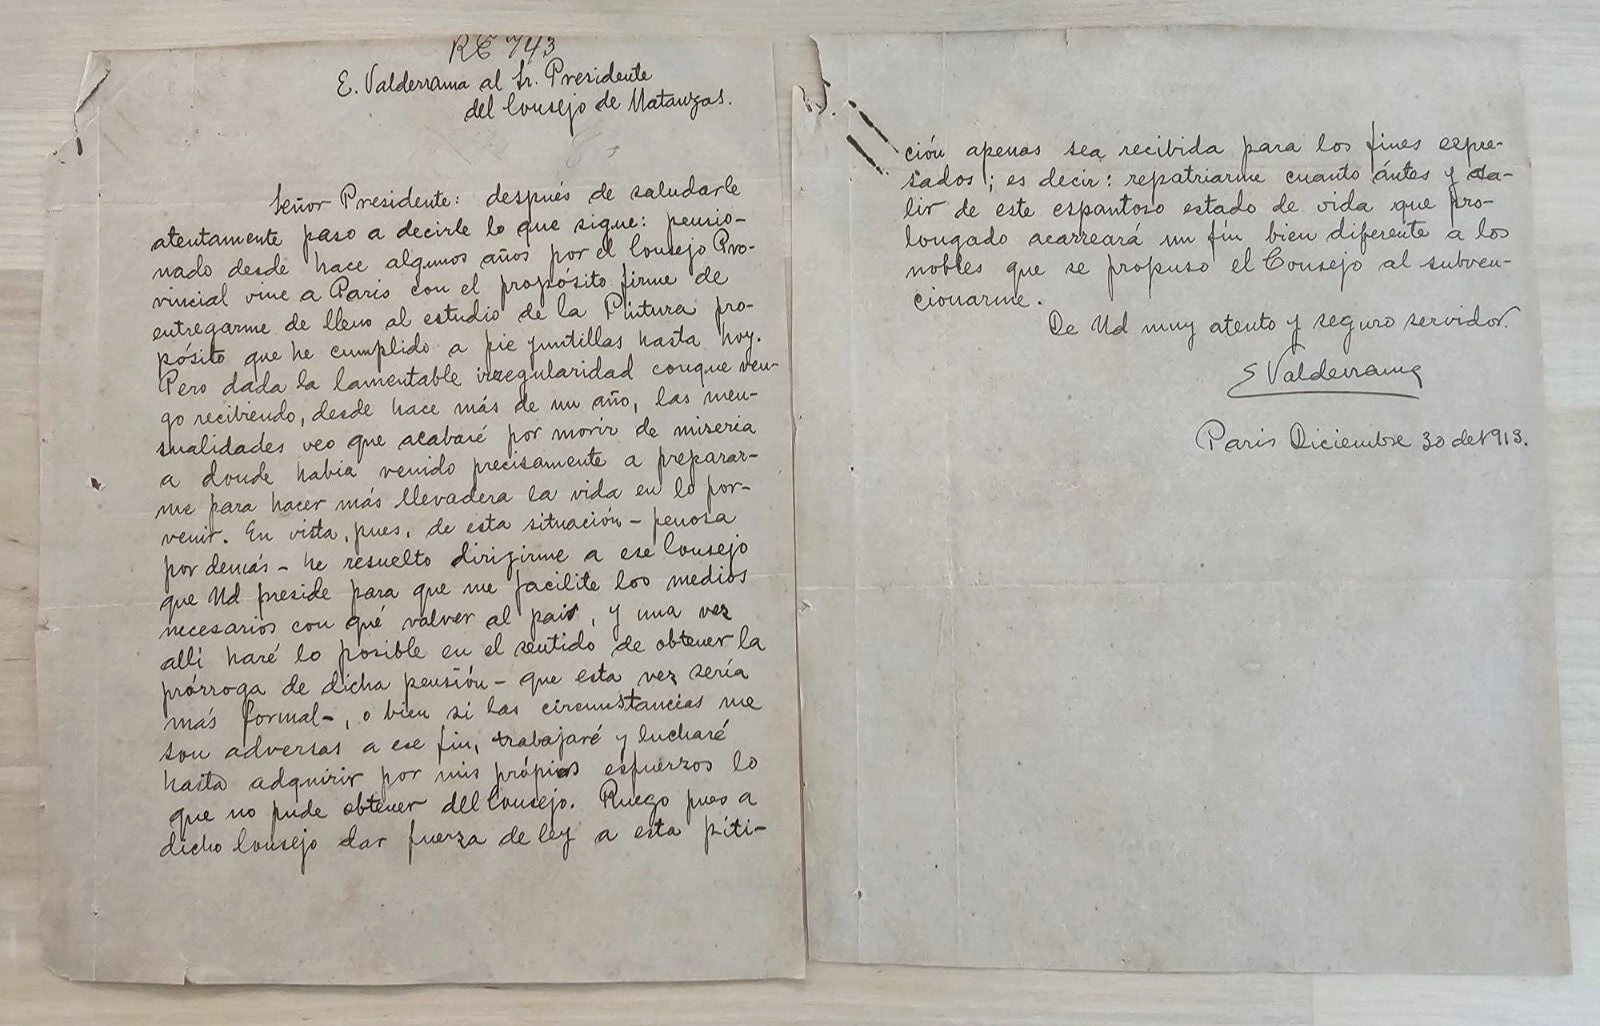 RE 743
E. Valderrama al Sr. Presidente
del Consejo de Matanzas.
Señor Presidente: después de saludarle
atentamente paso a decirle lo que sigue: pensio-
nado desde hace algunos años por el Consejo Pro-
vincial vine a Paris con el propósito firme de
entregarme de lleno al estudio de la Pintura pro-
pósito que he cumplido a pie juntillas hasta hoy.
Pero dada la lamentable irregularidad conque ven-
go recibiendo, desde hace más de un año, las men-
sualidades veo que acabaré por morir de miseria
a donde había venido precisamente a preparar-
me para hacer más llevadera la vida en lo por-
venir. En vista, pues, de esta situación - penosa
por demás - he resuelto dirigirme a ese Consejo
que Ud preside para que me facilite los medios
necesarios con qué valver al pais, y una vez
allí haré lo posible en el sentido de obtener la
prórroga de dicha pensión - que esta vez sería
más formal -, o bien si las circunstancias me
son adversas a ese fin, trabajaré y lucharé
hasta adquirir por mis própios esfuerzos lo
que no pude obtener del Consejo. Ruego pues a
dicho Consejo dar fuerza de ley a esta piti-
ción apenas sea recibida para los fines expre-
sados; es decir: repatriarme cuanto ántes y sa-
lir de este espantoso estado de vida que pro-
longado acarreará un fin bien diferente a los
nobles que se propuso el Consejo al subven-
cionarme.
De Ud muy atento y seguro servidor.
E Valderrama
Paris Diciembre 30 de 1913.